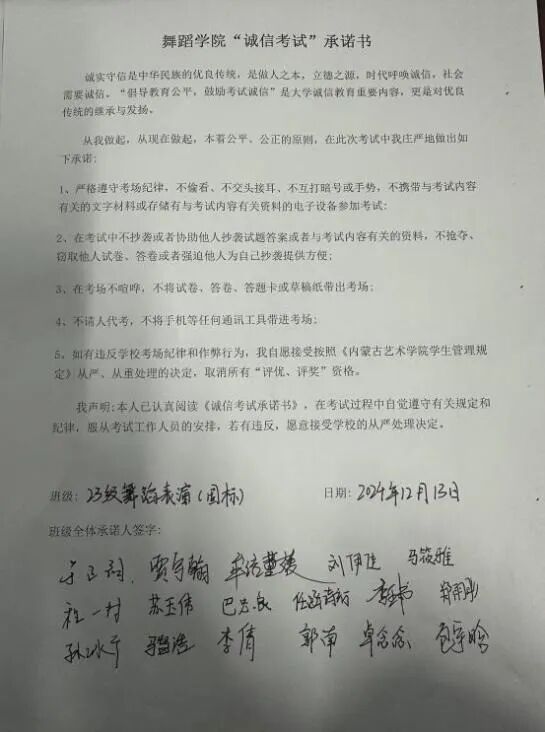 舞蹈学院“诚信考试”承诺书
诚实守信是中华民族的优良传统，是做人之本，立德之源，时代呼唤诚信，社会
需要诚信。“倡导教育公平，鼓励考试诚信”是大学诚信教育重要内容，更是对优良
传统的继承与发扬。
从我做起，从现在做起，本着公平、公正的原则，在此次考试中我庄严地做出如
下承诺:
1、严格遵守考场纪律，不偷看、不交头接耳、不互打暗号或手势，不携带与考试内容
有关的文字材料或存储有与考试内容有关资料的电子设备参加考试;
2、在考试中不抄袭或者协助他人抄袭试题答案或者与考试内容有关的资料，不抢夺、
窃取他人试卷、答卷或者强迫他人为自己抄袭提供方便;
3、在考场不喧哗，不将试卷、答卷、答题卡或草稿纸带出考场;
4、不请人代考，不将手机等任何通讯工具带进考场;
5、如有违反学校考场纪律和作弊行为，我自愿接受按照《内蒙古艺术学院学生管理规
定》从严、从重处理的决定，取消所有“评优、评奖”资格。
我声明:本人已认真阅读《诚信考试承诺书》，在考试过程中自觉遵守有关规定和
纪律，服从考试工作人员的安排，若有违反，愿意接受学校的从严处理决定。
班级: 23级舞蹈表演(国标) 日期: 2024年12月13日
班级全体承诺人签字:
贾宇翰 刘伊佳 马筱雅
程一村 苏玉伟
李倩 郭南 卓念念